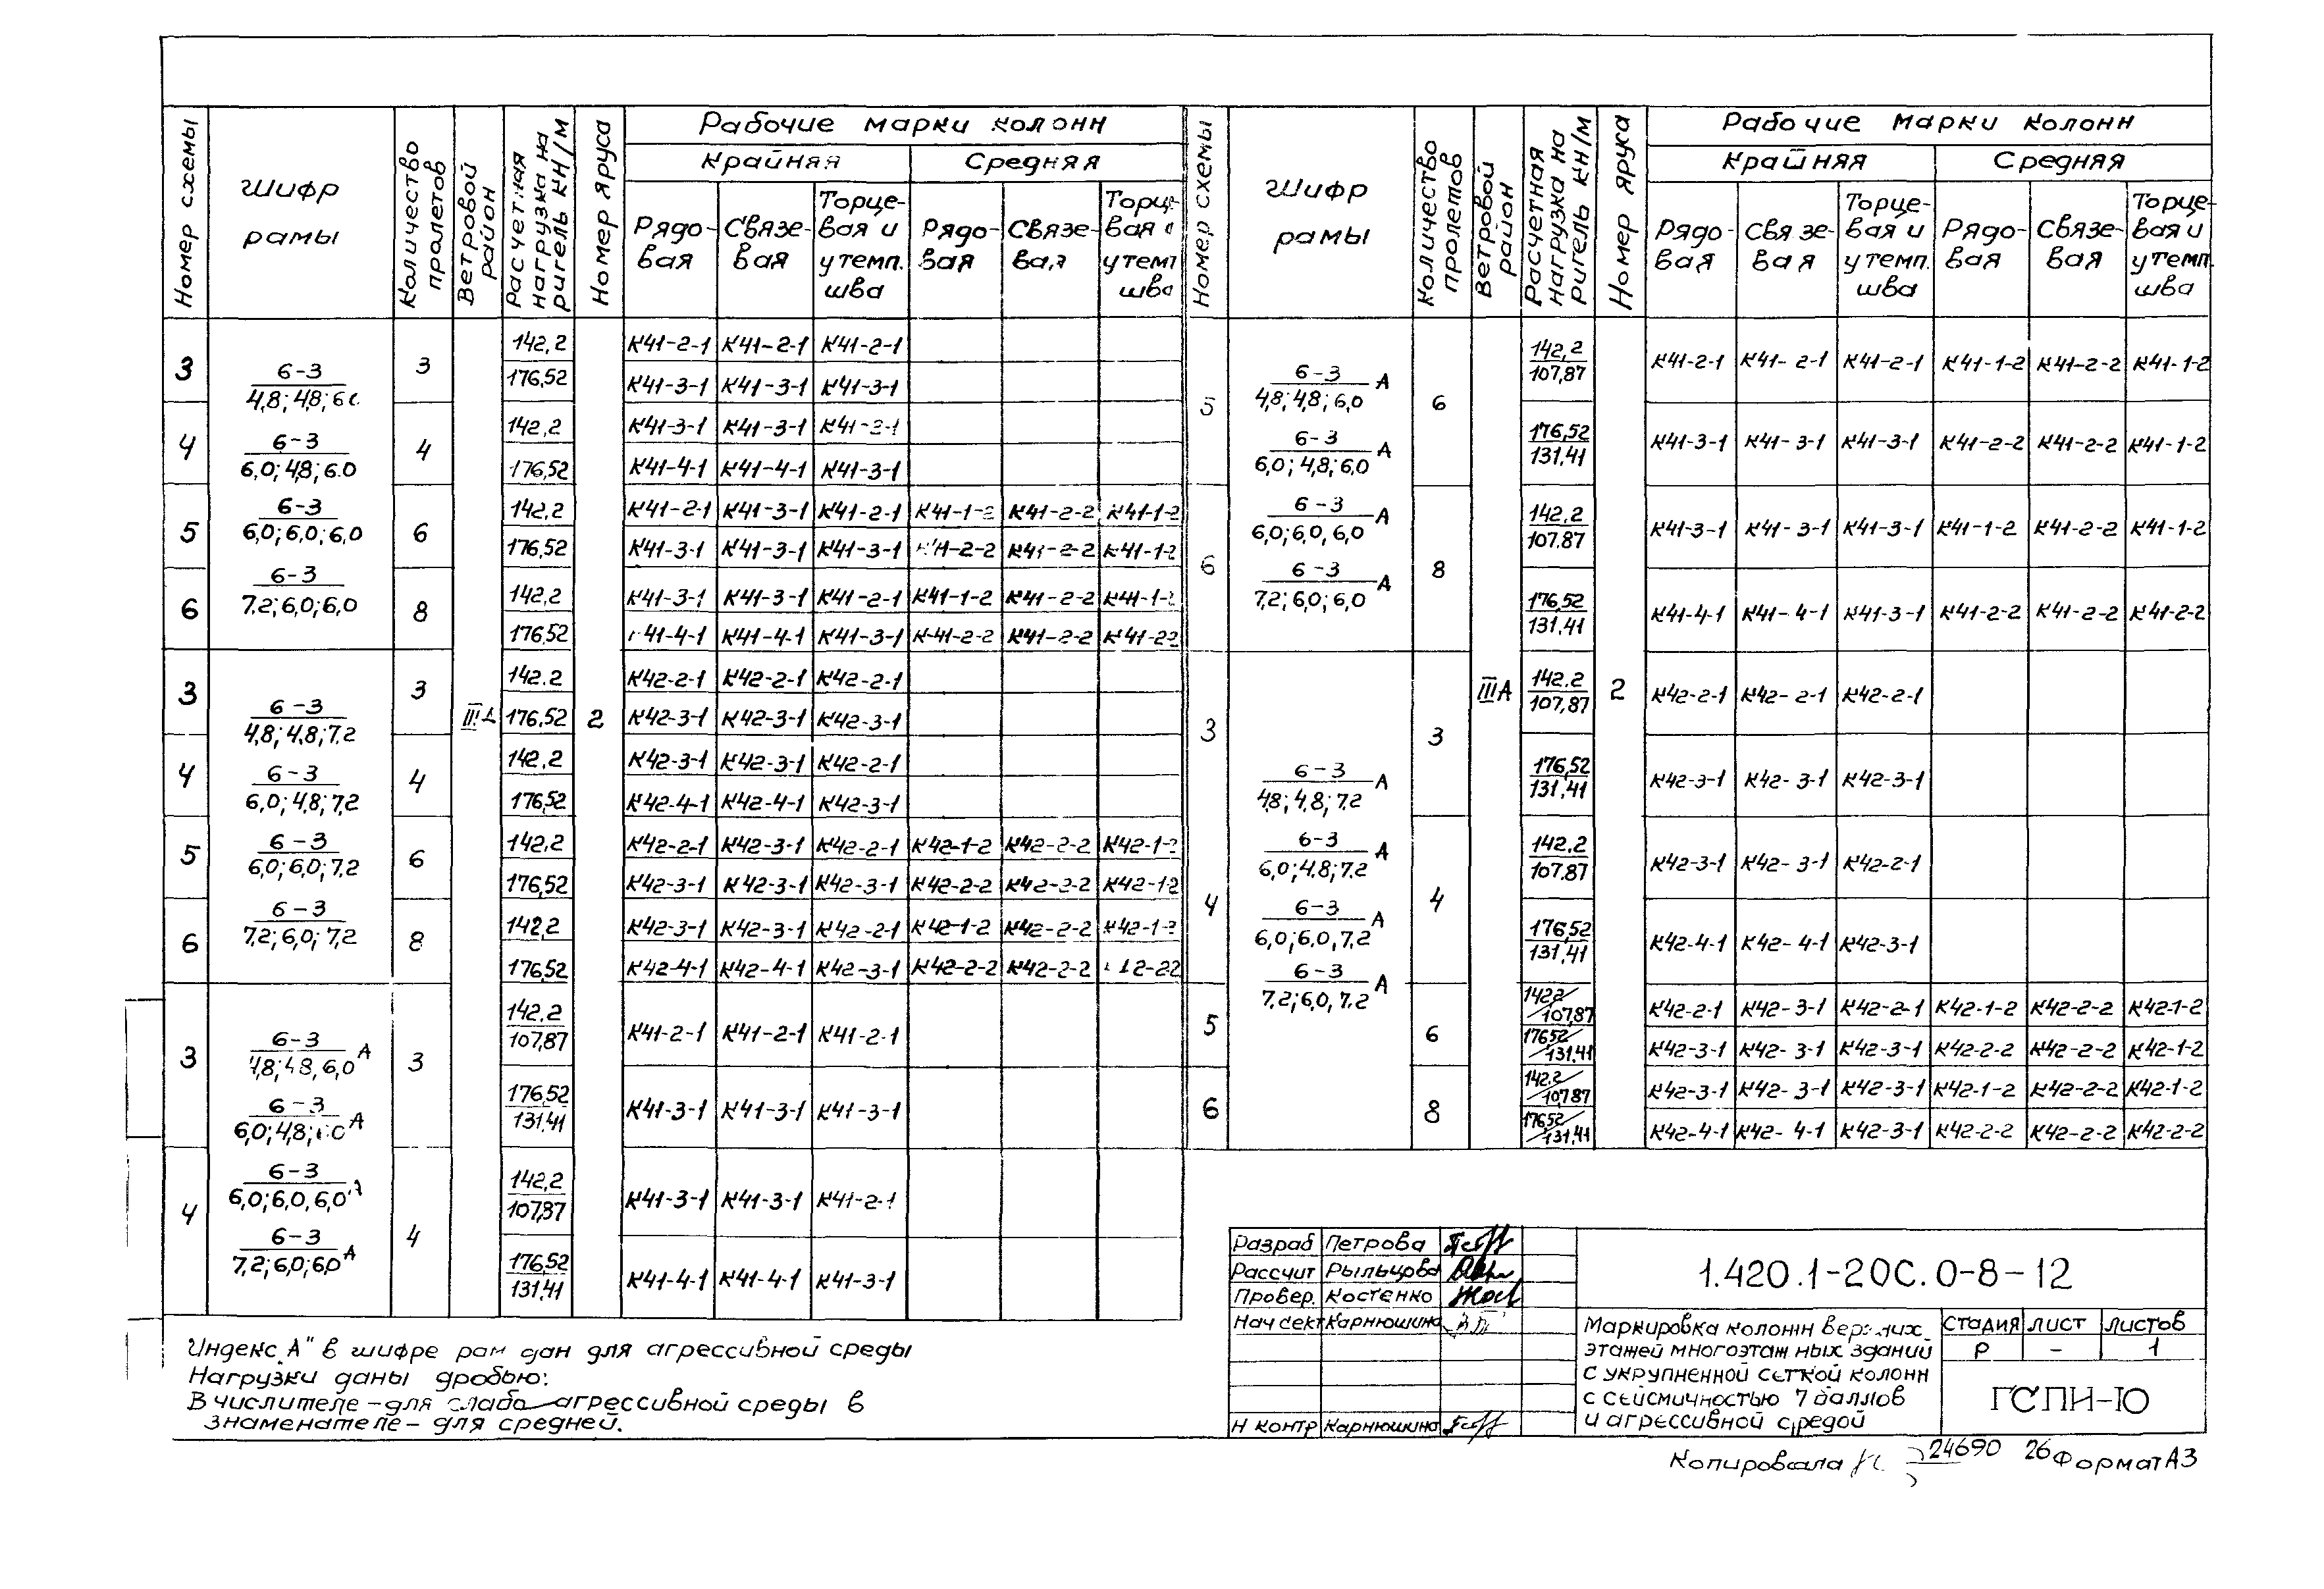 Номер схемы
Шифр рамы
Количество пролетов
Ветровой район
Расчетная нагрузка на ригель кН/м
Номер яруса
Рабочие марки колонн
Крайняя Средняя
Рядовая Связевая Торцевая и у темп. шва Рядовая Связевая Торцевая у темп шва
3 3 142,2 К41-2-1 К41-2-1 К41-2-1
6-3
4,8; 4,8;
176,52 К41-3-1 К41-3-1 К41-3-1
4 4 142,2 К41-3-1 К41-3-1
6-3
6,0; 4,8; 6.0
176,52 К41-4-1 К41-4-1 К41-3-1
5 6 142,2 К41-2-1 К41-3-1 К41-2-1 К41-1-2 К41-2-2 К41-1-2
6-3
6,0; 6,0; 6,0
176,52 К41-3-1 К41-3-1 К41-3-1 К41-2-2 К41-2-2 К41-1-2
6 8 142,2 К41-3-1 К41-3-1 К41-2-1 К41-1-2 К41-2-2 К41-1-2
6-3
7,2; 6,0; 6,0
176,52 К41-4-1 К41-4-1 К41-3-1 К41-2-2 К41-2-2 К41-22
III 2
3 3 142.2 К42-2-1 К42-2-1 К42-2-1
6-3
4,8; 4,8; 7.2
176,52 К42-3-1 К42-3-1 К42-3-1
4 4 142,2 К42-3-1 К42-3-1 К42-2-1
6-3
6,0; 4,8; 7,2
176,52 К42-4-1 К42-4-1 К42-3-1
5 6 142,2 К42-2-1 К42-3-1 К42-2-1 К42-1-2 К42-2-2 К42-1-2
6-3
6,0; 6,0; 7,2
176,52 К42-3-1 К42-3-1 К42-3-1 К42-2-2 К42-2-2 К42-12
6 8 142,2 К42-3-1 К42-3-1 К42-2-1 К42-1-2 К42-2-2 К42-1-2
6-3
7,2; 6,0; 7,2
176,52 К42-4-1 К42-4-1 К42-3-1 К42-2-2 К42-2-2
3 3 142,2 К41-2-1 К41-2-1 К41-2-1
107,87
6-3 А
4,8; 4,8, 6,0
176,52 К41-3-1 К41-3-1 К41-3-1
131,41
6-3 А
6,0; 4,8;
4 4 142,2 К41-3-1 К41-3-1 К41-2-1
107,87
6-3
6,0; 6,0, 6,0
6-3 А
7,2; 6,0; 6,0
176,52 К41-4-1 К41-4-1 К41-3-1
131,41
Номер схемы
Шифр рамы
Количество пролетов
Ветровой район
Расчетная нагрузка на ригель кН/м
Номер яруса
Рабочие марки колонн
Крайняя Средняя
Рядовая Связевая Торцевая и у темп. шва Рядовая Связевая Торцевая и у темп. шва
5 6 142,2 К41-2-1 К41-2-1 К41-2-1 К41-1-2 К41-2-2 К41-1-2
107,87
6-3 А
4,8; 4,8; 6,0
176,52 К41-3-1 К41-3-1 К41-3-1 К41-2-2 К41-2-2 К41-1-2
131,41
6-3 А
6,0; 4,8; 6,0
6 8 142,2 К41-3-1 К41-3-1 К41-3-1 К41-1-2 К41-2-2 К41-1-2
107.87
6-3 А
6,0; 6,0, 6,0
176,52 К41-4-1 К41-4-1 К41-3-1 К41-2-2 К41-2-2 К41-2-2
131,41
6-3 А
7,2; 6,0; 6,0
III А 2
3 3 142.2 К42-2-1 К42-2-1 К42-2-1
107,87
176,52 К42-3-1 К42-3-1 К42-3-1
131,41
6-3 А
4,8; 4,8; 7,2
4 4 142,2 К42-3-1 К42-3-1 К42-2-1
107.87
6-3 А
6,0; 4,8; 7,2
176,52 К42-4-1 К42-4-1 К42-3-1
131,41
6-3 А
6,0; 6,0, 7,2
6-3 А
7,2; 6,0, 7.2
5 6 142,2/107,87 К42-2-1 К42-3-1 К42-2-1 К42-1-2 К42-2-2 К42-1-2
17652/131,41 К42-3-1 К42-3-1 К42-3-1 К42-2-2 К42-2-2 К42-1-2
6 8 142.2/10787 К42-3-1 К42-3-1 К42-3-1 К42-1-2 К42-2-2 К42-1-2
17652/131,41 К42-4-1 К42-4-1 К42-3-1 К42-2-2 К42-2-2 К42-2-2
Индекс „А" в шифре рам дан для агрессивной среды
Нагрузки даны дробью:
В числителе – для слабо агрессивной среды в
знаменателе – для средней.
Разраб Петрова
Рассчит Рыльцова
Провер. Костенко
Нач сект Карнюшина
Н контр Карнюшина
1.420.1-20С.0-8-12
Маркировка колонн верхних
этажей многоэтажных зданий
с укрупненной сеткой колонн
с сейсмичностью 7 баллов
и агрессивной средой
Стадия Лист Листов
Р – 1
ГСПИ-10
Копировала 24690 26 Формат А3